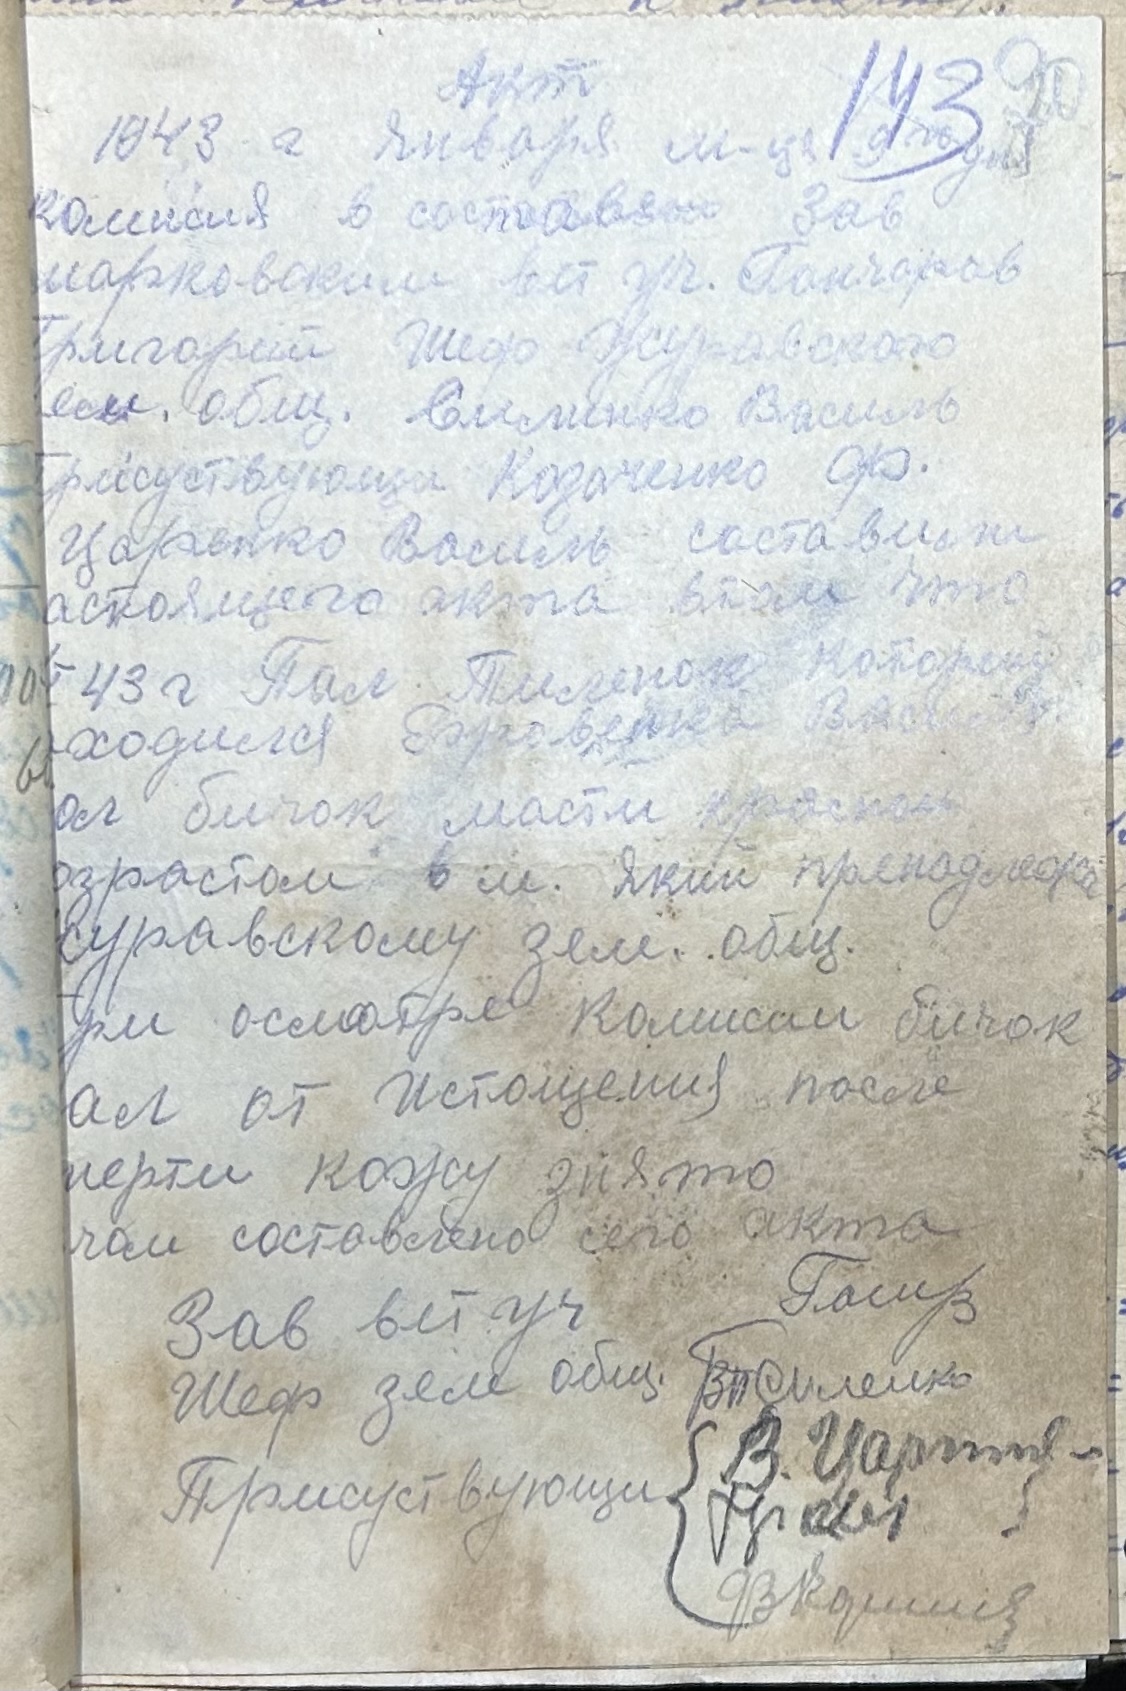 Акт
143
90
1943 г января м-ця 9 дня
комисия в составе Зав
марковским вет уч. Гончаров
Григорий Шеф Журавского
зем. общ. Василь
Присуствующи Козаченко Ф.
Царенко Василь составили
астоящего акта втом что
43 г Пал Теленок которий
ходился Василя
ол бичок масти красной
озрастом 6 м. який принадлежа
журавскому зем. общ.
При осмотре комисии бичок
ал от истощения после
мерти кожу знято
чом составлено сего акта
Зав вет уч
Шеф зем общ.
Присуствующи